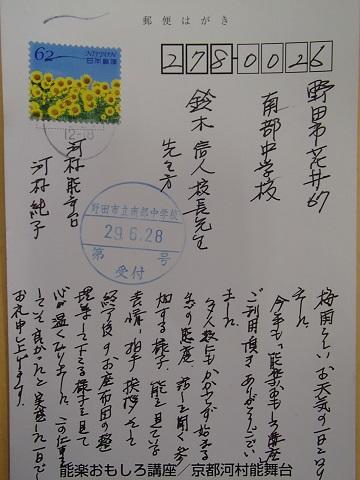 郵便はがき
62
NIPPON
日本郵便
12-18
278-0026
野田市花井67
南部中学校
鈴木信人校長先生
先生方
河村能舞台
河村純子
野田市立南部中学校
29.6.28
第 号
受付
梅雨らしいお天気の一日となり
ました
今年も「能楽おもしろ講座」
ご利用頂きありがとうござい
ました
多人数にもかかわらず始まる
前の態度 話を聞く姿
表情、拍手 挨拶 そして
終了後のお座布団の整
理をして下さる様子を見て
心が温くなりました この仕事を
しても良かったと実感した一日でした
お礼申し上げます。
能楽おもしろ講座／京都河村能舞台